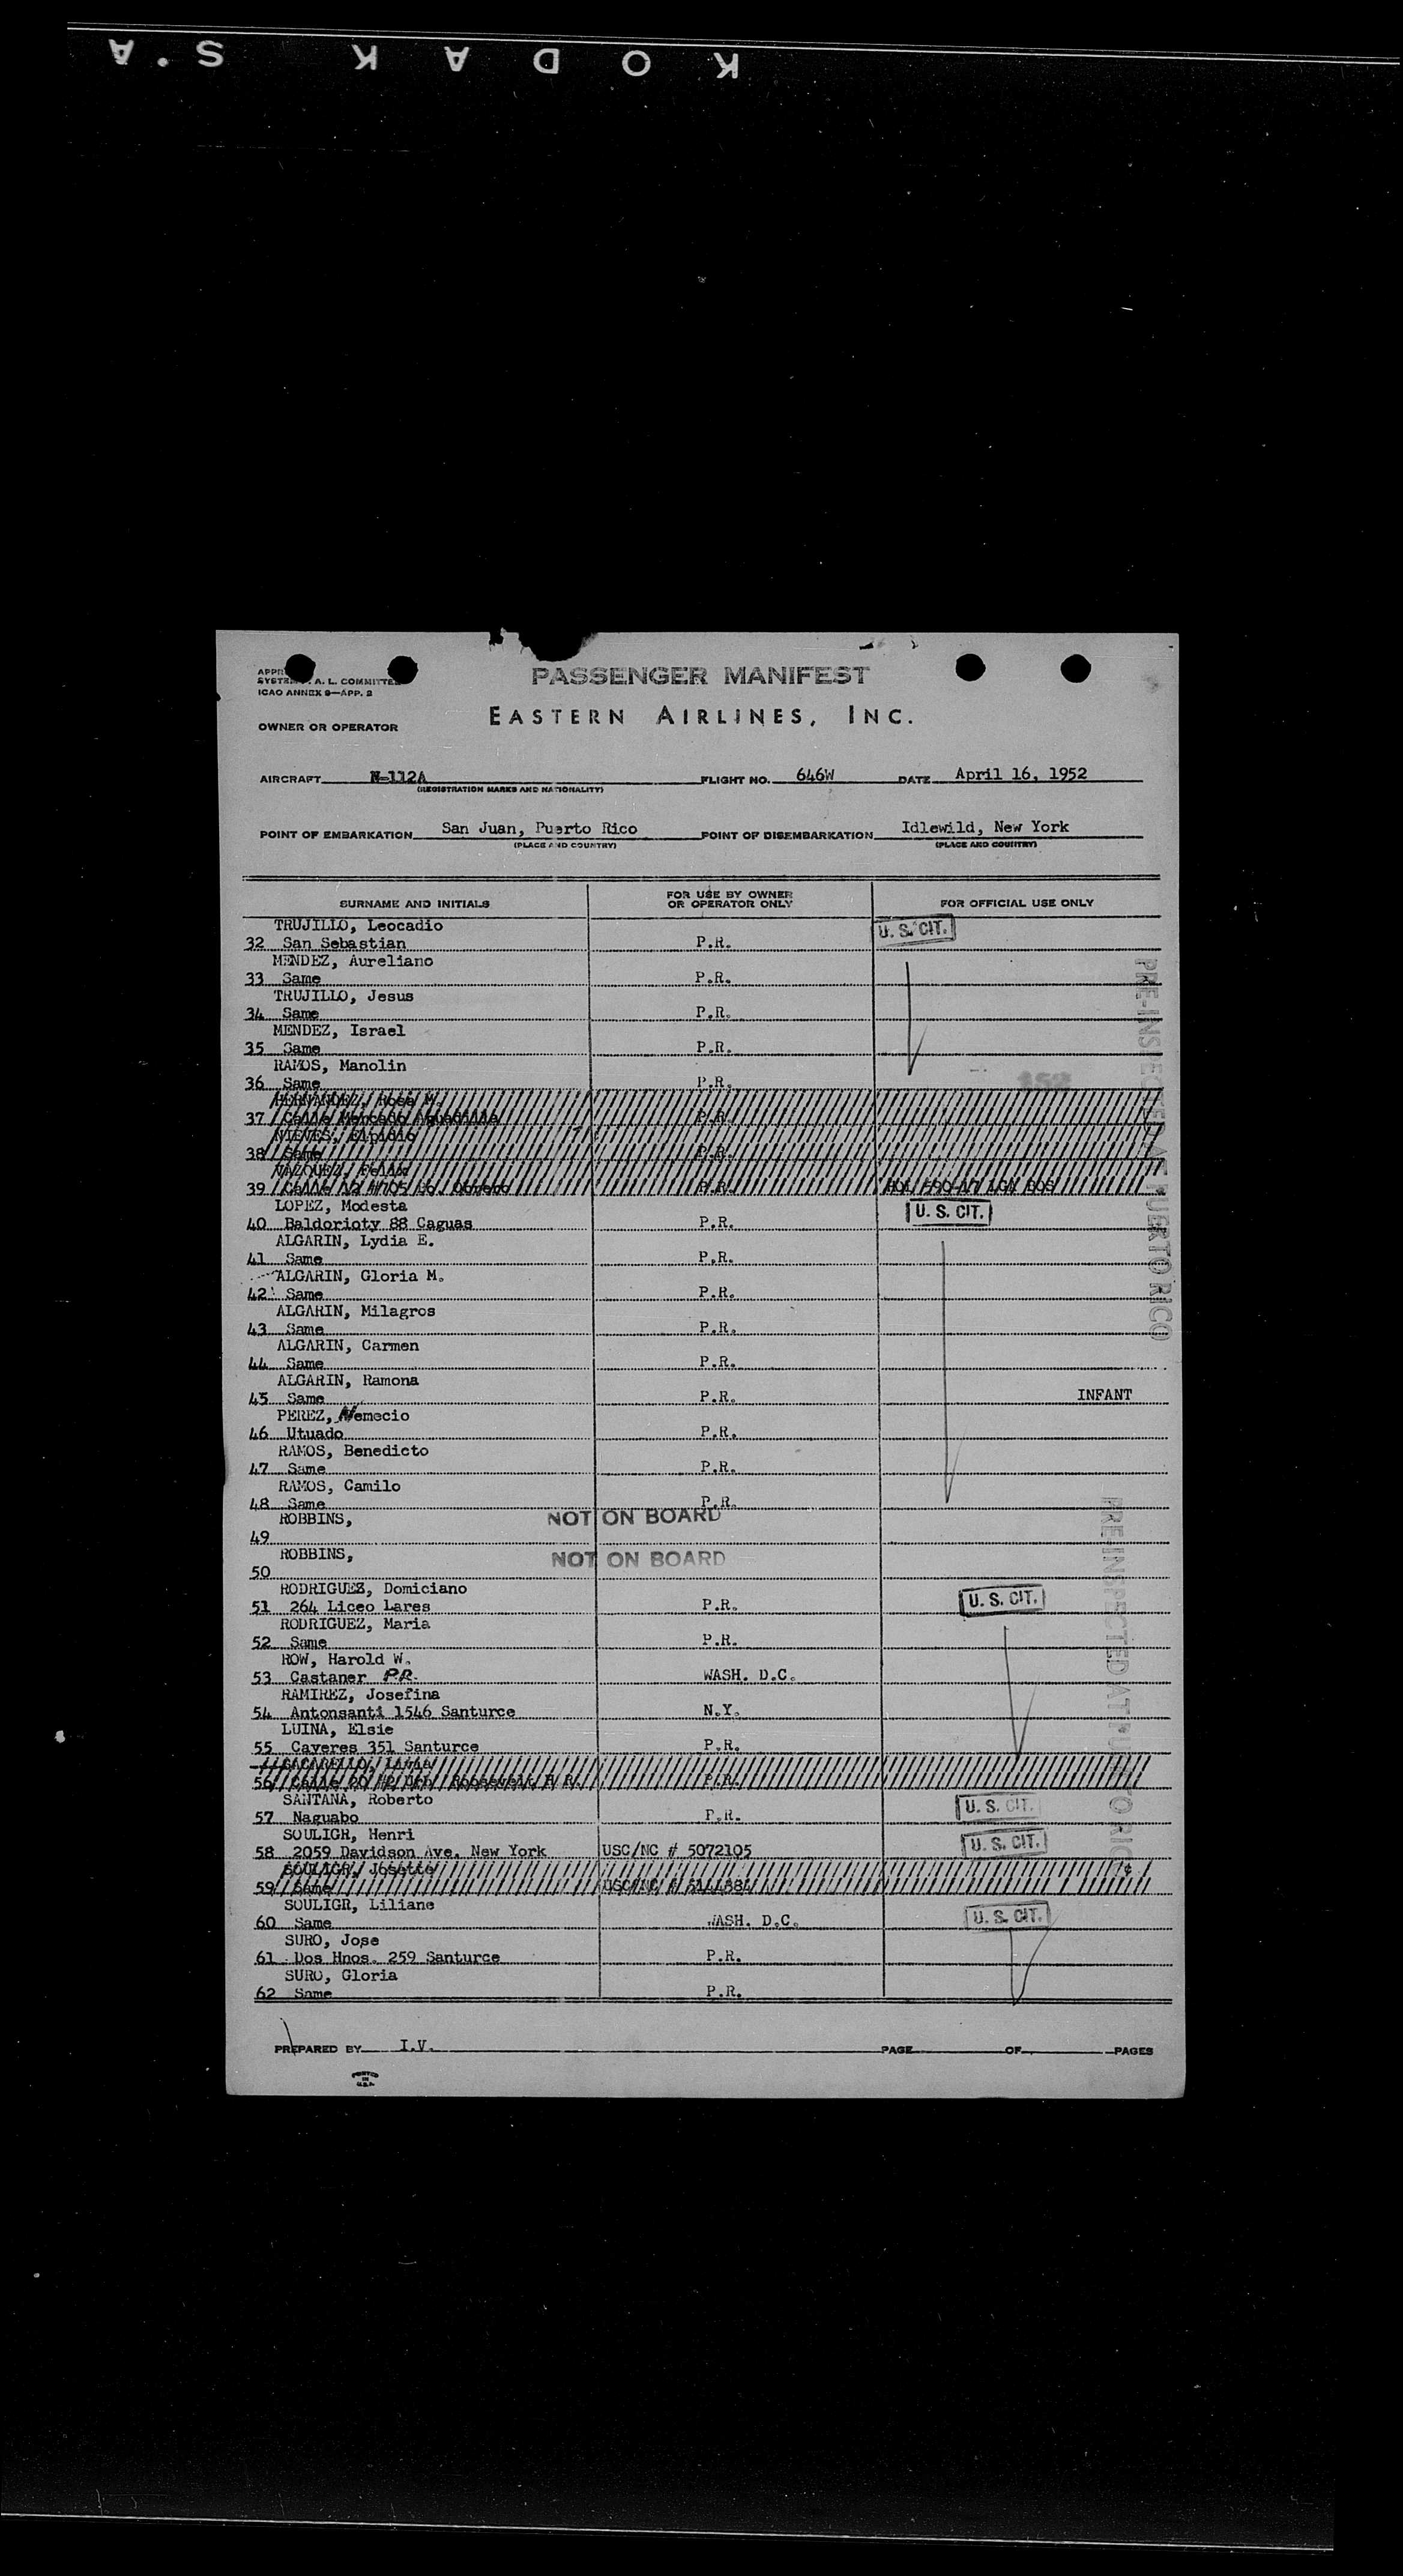 KODAK S.A
PASSENGER MANIFEST
A. L. COMMITTEE
ICAO ANNEX 9—APP. 2
EASTERN AIRLINES, INC.
OWNER OR OPERATOR
AIRCRAFT N-112A FLIGHT NO. 646W DATE April 16, 1952
(REGISTRATION MARKS AND NATIONALITY)
POINT OF EMBARKATION San Juan, Puerto Rico POINT OF DISEMBARKATION Idlewild, New York
(PLACE AND COUNTRY) (PLACE AND COUNTRY)
SURNAME AND INITIALS FOR USE BY OWNER OR OPERATOR ONLY FOR OFFICIAL USE ONLY
TRUJILLO, Leocadio
32 San Sebastian P.R. U. S. CIT.
MENDEZ, Aureliano
33 Same P.R.
TRUJILLO, Jesus
34 Same P.R.
MENDEZ, Israel
35 Same P.R.
RAMOS, Manolin
36 Same P.R. 158
HERNANDEZ, Rosa M.
37 Calle Mercado Aguadilla P.R.
NIEVES, Elpidio
38 Same P.R.
VAZQUEZ, Felix
39 Calle 12 #705 Bo. Obrero P.R.
LOPEZ, Modesta
40 Baldorioty 88 Caguas P.R. U. S. CIT.
ALGARIN, Lydia E.
41 Same P.R.
ALGARIN, Gloria M.
42 Same P.R.
ALGARIN, Milagros
43 Same P.R.
ALGARIN, Carmen
44 Same P.R.
ALGARIN, Ramona
45 Same P.R. INFANT
PEREZ, Nemecio
46 Utuado P.R.
RAMOS, Benedicto
47 Same P.R.
RAMOS, Camilo
48 Same P.R.
ROBBINS, NOT ON BOARD
49
ROBBINS, NOT ON BOARD
50
RODRIGUEZ, Domiciano
51 264 Liceo Lares P.R. U. S. CIT.
RODRIGUEZ, Maria
52 Same P.R.
ROW, Harold W.
53 Castaner P.R. WASH. D.C.
RAMIREZ, Josefina
54 Antonsanti 1546 Santurce N.Y.
LUINA, Elsie
55 Caveres 351 Santurce P.R.
SACARELLO, Livia
56 Calle 20 #2 Urb. Roosevelt H R. P.R.
SANTANA, Roberto
57 Naguabo P.R. U. S. CIT.
SOULIGR, Henri
58 2059 Davidson Ave. New York USC/NC # 5072105 U. S. CIT.
SOULIGR, Josette
59 Same USC/NC #
SOULIGR, Liliane
60 Same WASH. D.C. U. S. CIT.
SURO, Jose
61 Dos Hnos. 259 Santurce P.R.
SURO, Gloria
62 Same P.R.
PRE-INSPECTED AT PUERTO RICO
PRE-INSPECTED AT PUERTO RICO
PREPARED BY I.V. PAGE OF PAGES
PRINTED
IN
U.S.A.